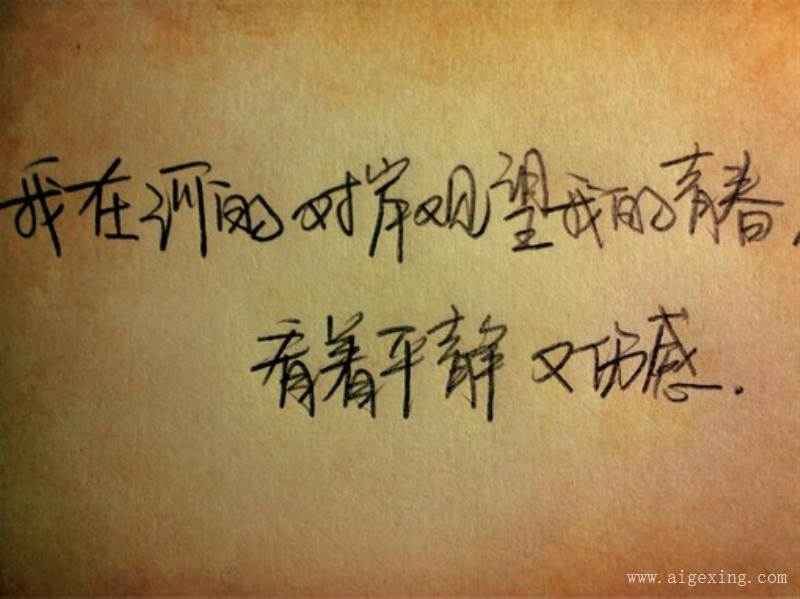 我在河的对岸观望我的青春,
看着平静又伤感.
www.aigexing.com